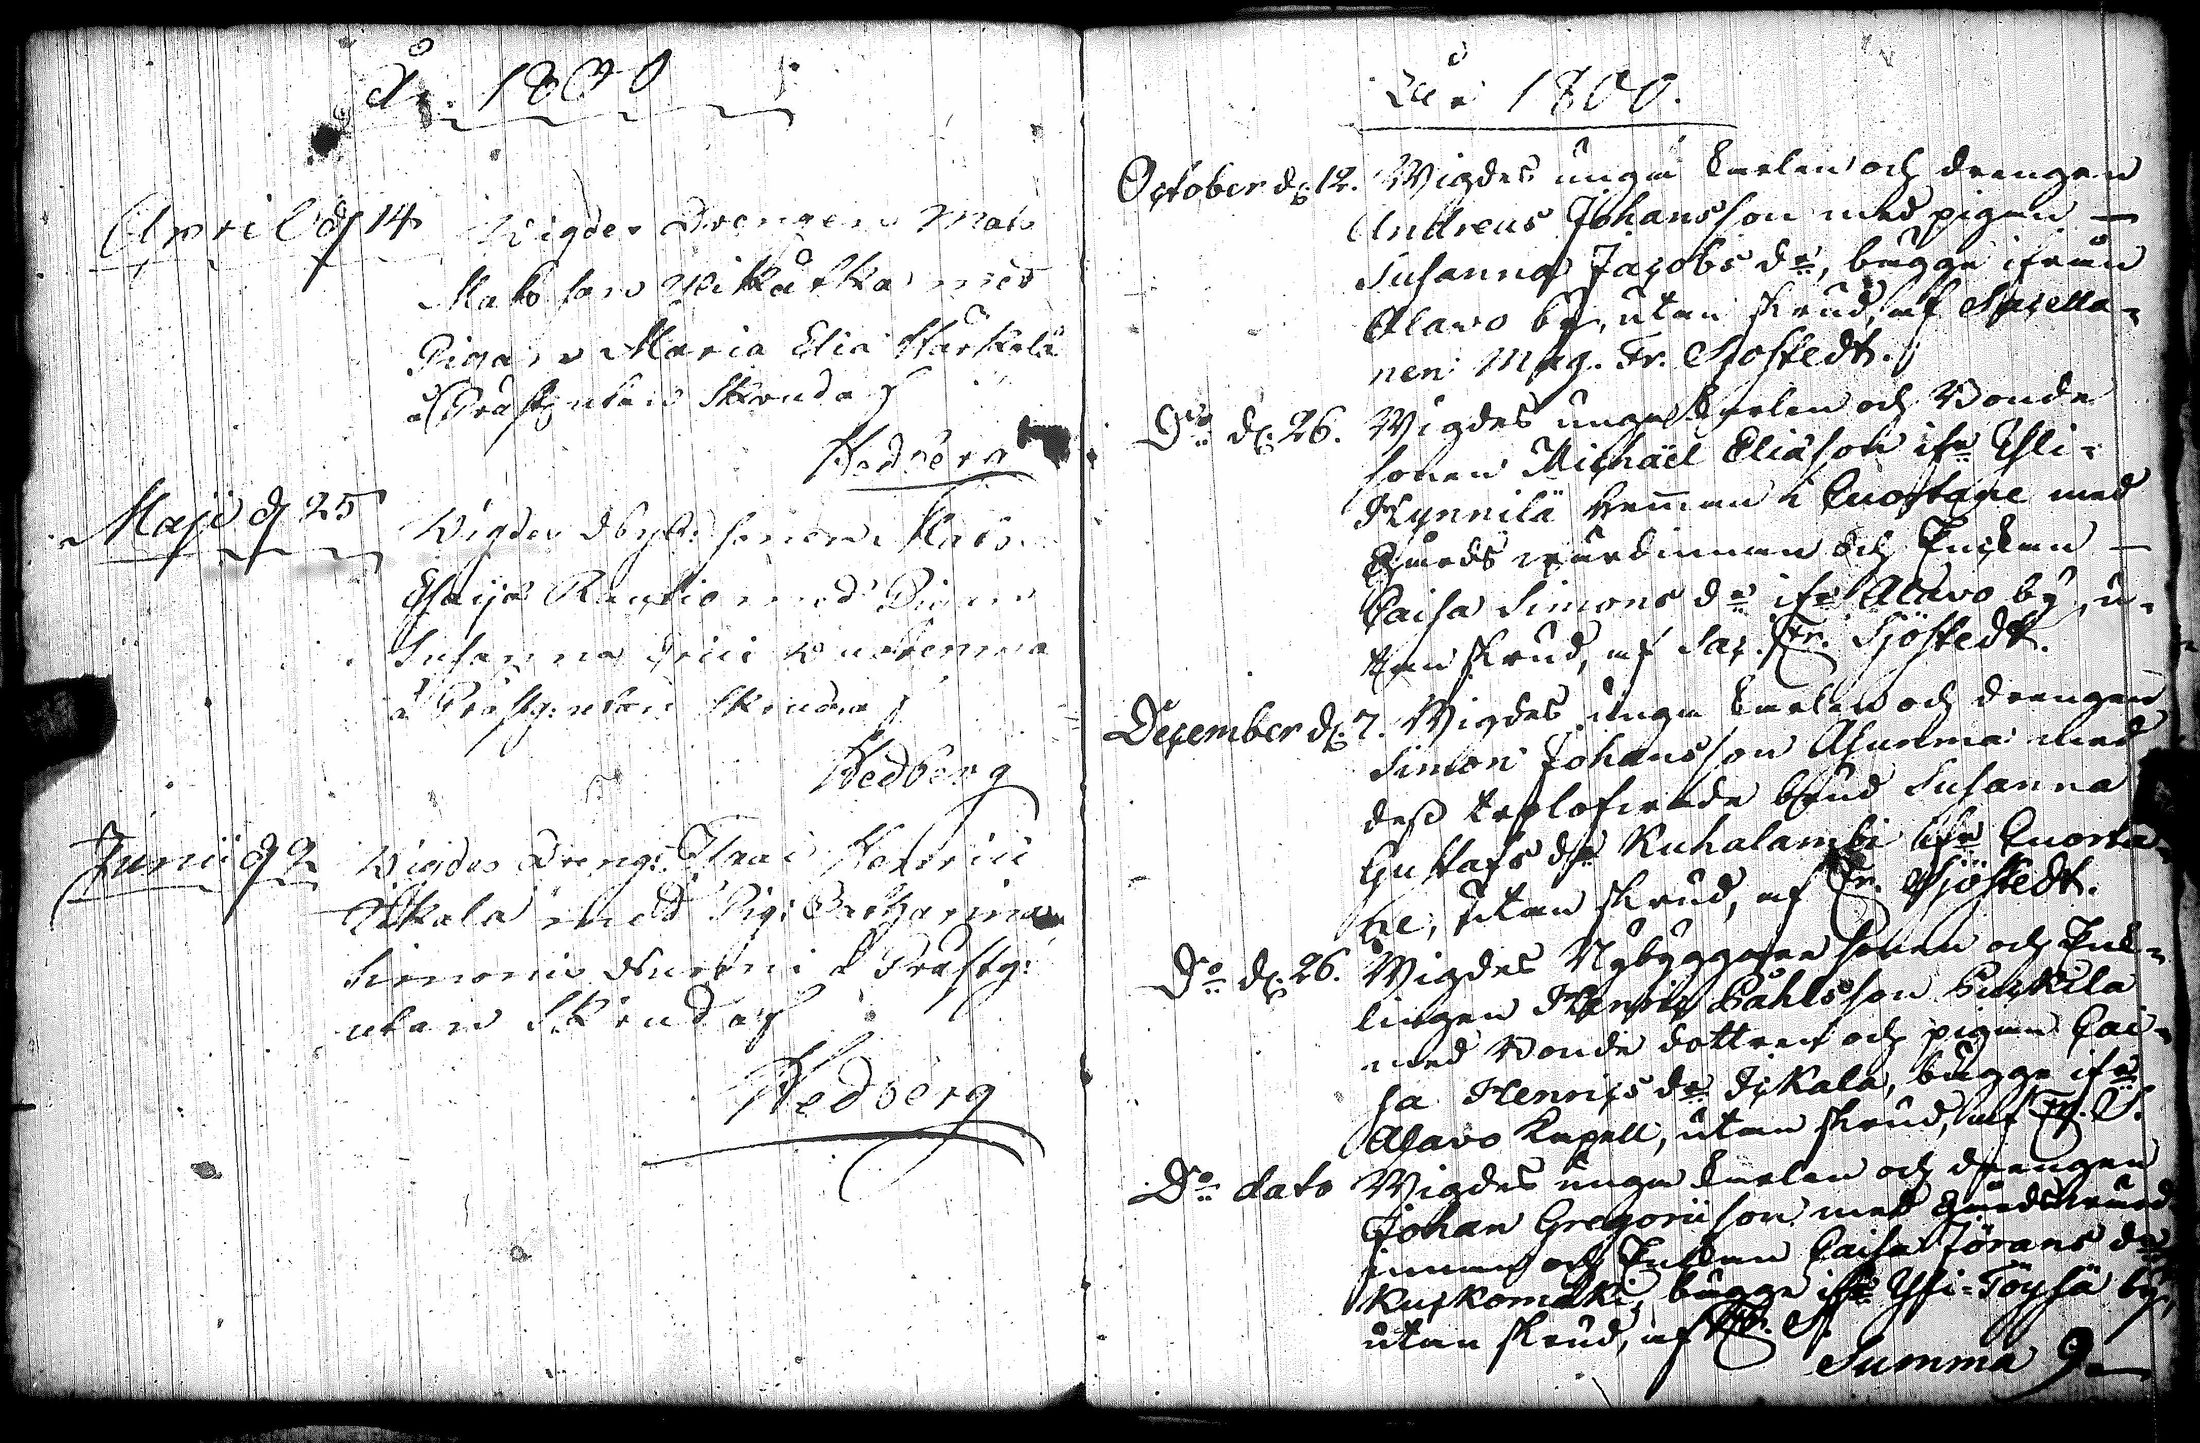 År. 1800
April d 14 Wigdes Drengen Mats
Matsson med
Pigan Maria Elia
å Prästg utan Skrud af
Hedberg
Maji d 25 Wigdes sonen Mats
Rautio med Pigan
Susanna
å Prästg: utan Skrud af
Hedberg
Junii d 2 Wigdes Dreng: Isaac Henrici
med Pig: Catharina
Simonis å Prästg:
utan Skrud af
Hedberg
År 1800.
October d: 12. Wigdes unga karlen och drengen
Andreas Johansson med pigan —
Susanna Jacobs dr, bägge ifrån
Alavo by, utan skrud, af Capella-
nen Mag. Fr. Sjöstedt.
Do d: 26. Wigdes unga karlen och Bonde
sonen Michaël Eliäson ifr Yli-
Hynnilä heman i Cuortane med
Gårds wärdinnan och Enckan —
Caisa Simons dr ifr Alavo by, u-
tan skrud, af Sac. Fr. Sjöstedt.
December d: 7. Wigdes unga karlen och drengen
Simon Johansson med
dess trolofvade brud Susanna
Gustafs dr Kuhalambi ifr Cuorta-
ne, utan skrud, af Fr. Sjöstedt.
Do d: 26. Wigdes Nybyggare sonen och Enk-
lingen Henric Påhlsson
med Bonde dottren och pigan Cai-
sa Henrics dr bägge ifr
Alavo Kapell, utan skrud, af Fr. S.
Do dato Wigdes unga karlen och drengen
Johan Gregorii son med Gårdswärd-
innan och Enkan Caisa Jörans dr
bägge ifr Yli-Töysä by,
utan skrud, af Fr. S.
Summa 9 —